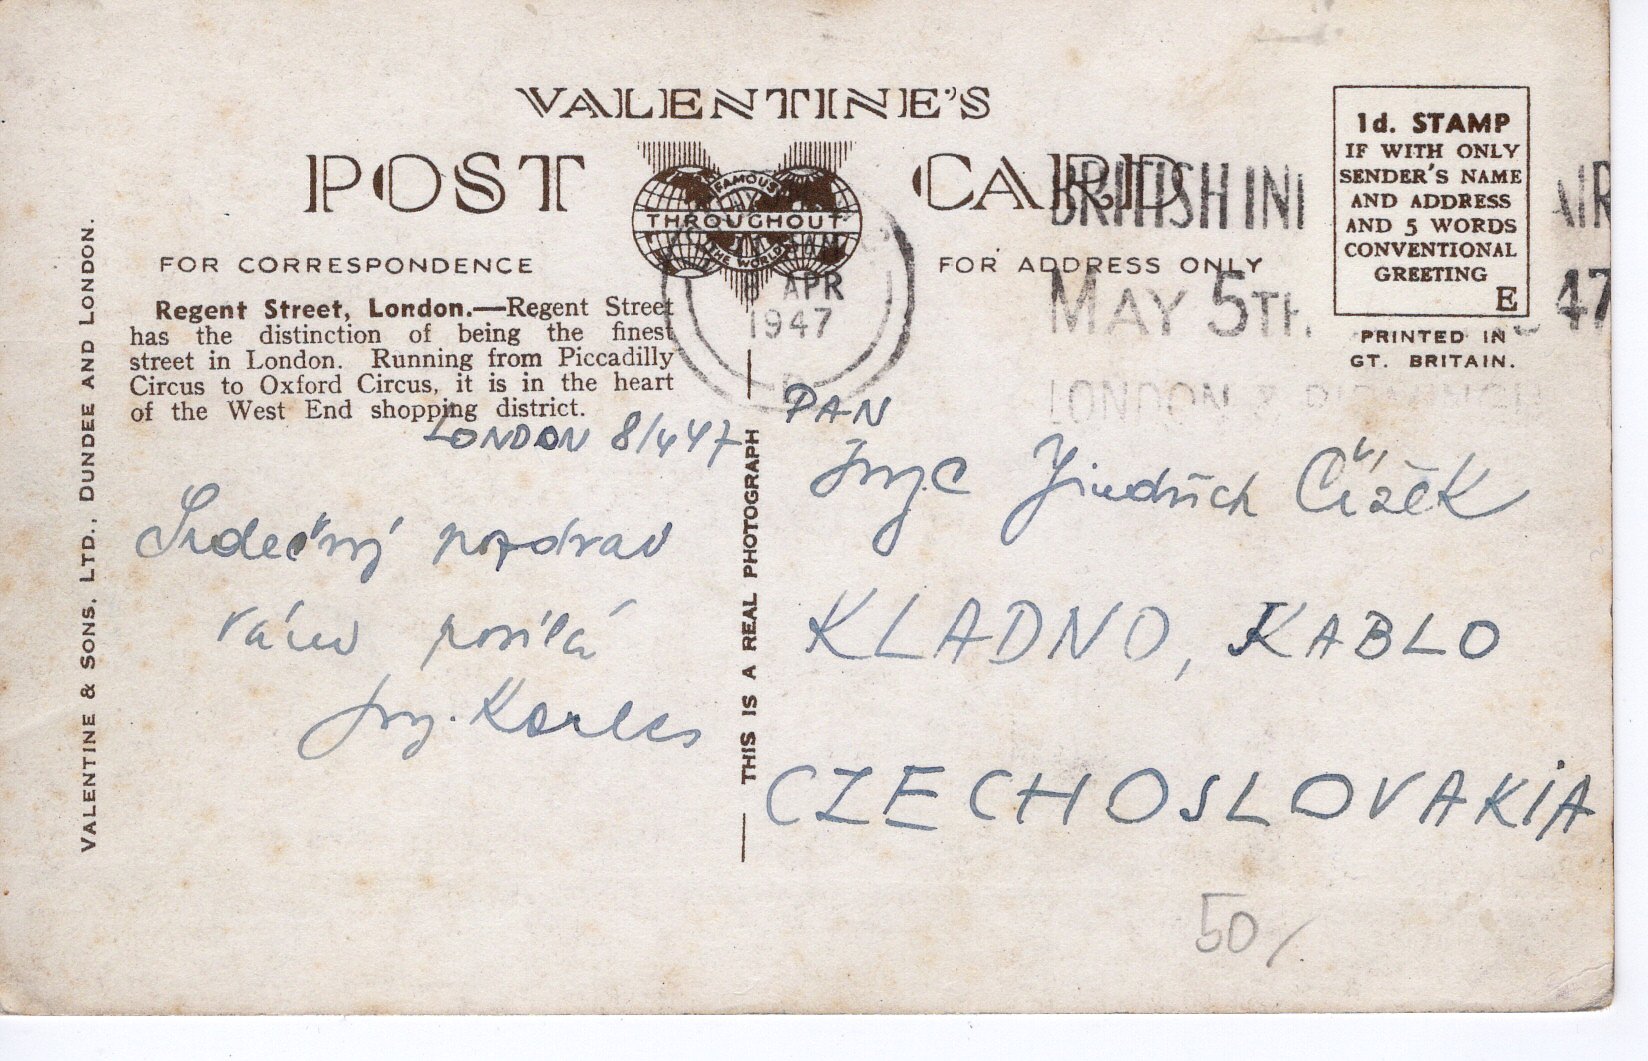 VALENTINE'S
POST CARD
FAMOUS
THROUGHOUT
THE WORLD
FOR CORRESPONDENCE
FOR ADDRESS ONLY
Regent Street, London.—Regent Street
has the distinction of being the finest
street in London. Running from Piccadilly
Circus to Oxford Circus, it is in the heart
of the West End shopping district.
LONDON 8/4 47
Srdečný pozdrav
vám posílá
Ing.
VALENTINE & SONS, LTD., DUNDEE AND LONDON.
THIS IS A REAL PHOTOGRAPH
8 APR
1947
BRITISH IN AIR
MAY 5TH 47
LONDON &
1d. STAMP
IF WITH ONLY
SENDER'S NAME
AND ADDRESS
AND 5 WORDS
CONVENTIONAL
GREETING
E
PRINTED IN
GT. BRITAIN.
PAN
Ing. C Jindřich Čížek
KLADNO, KABLO
CZECHOSLOVAKIA
50/